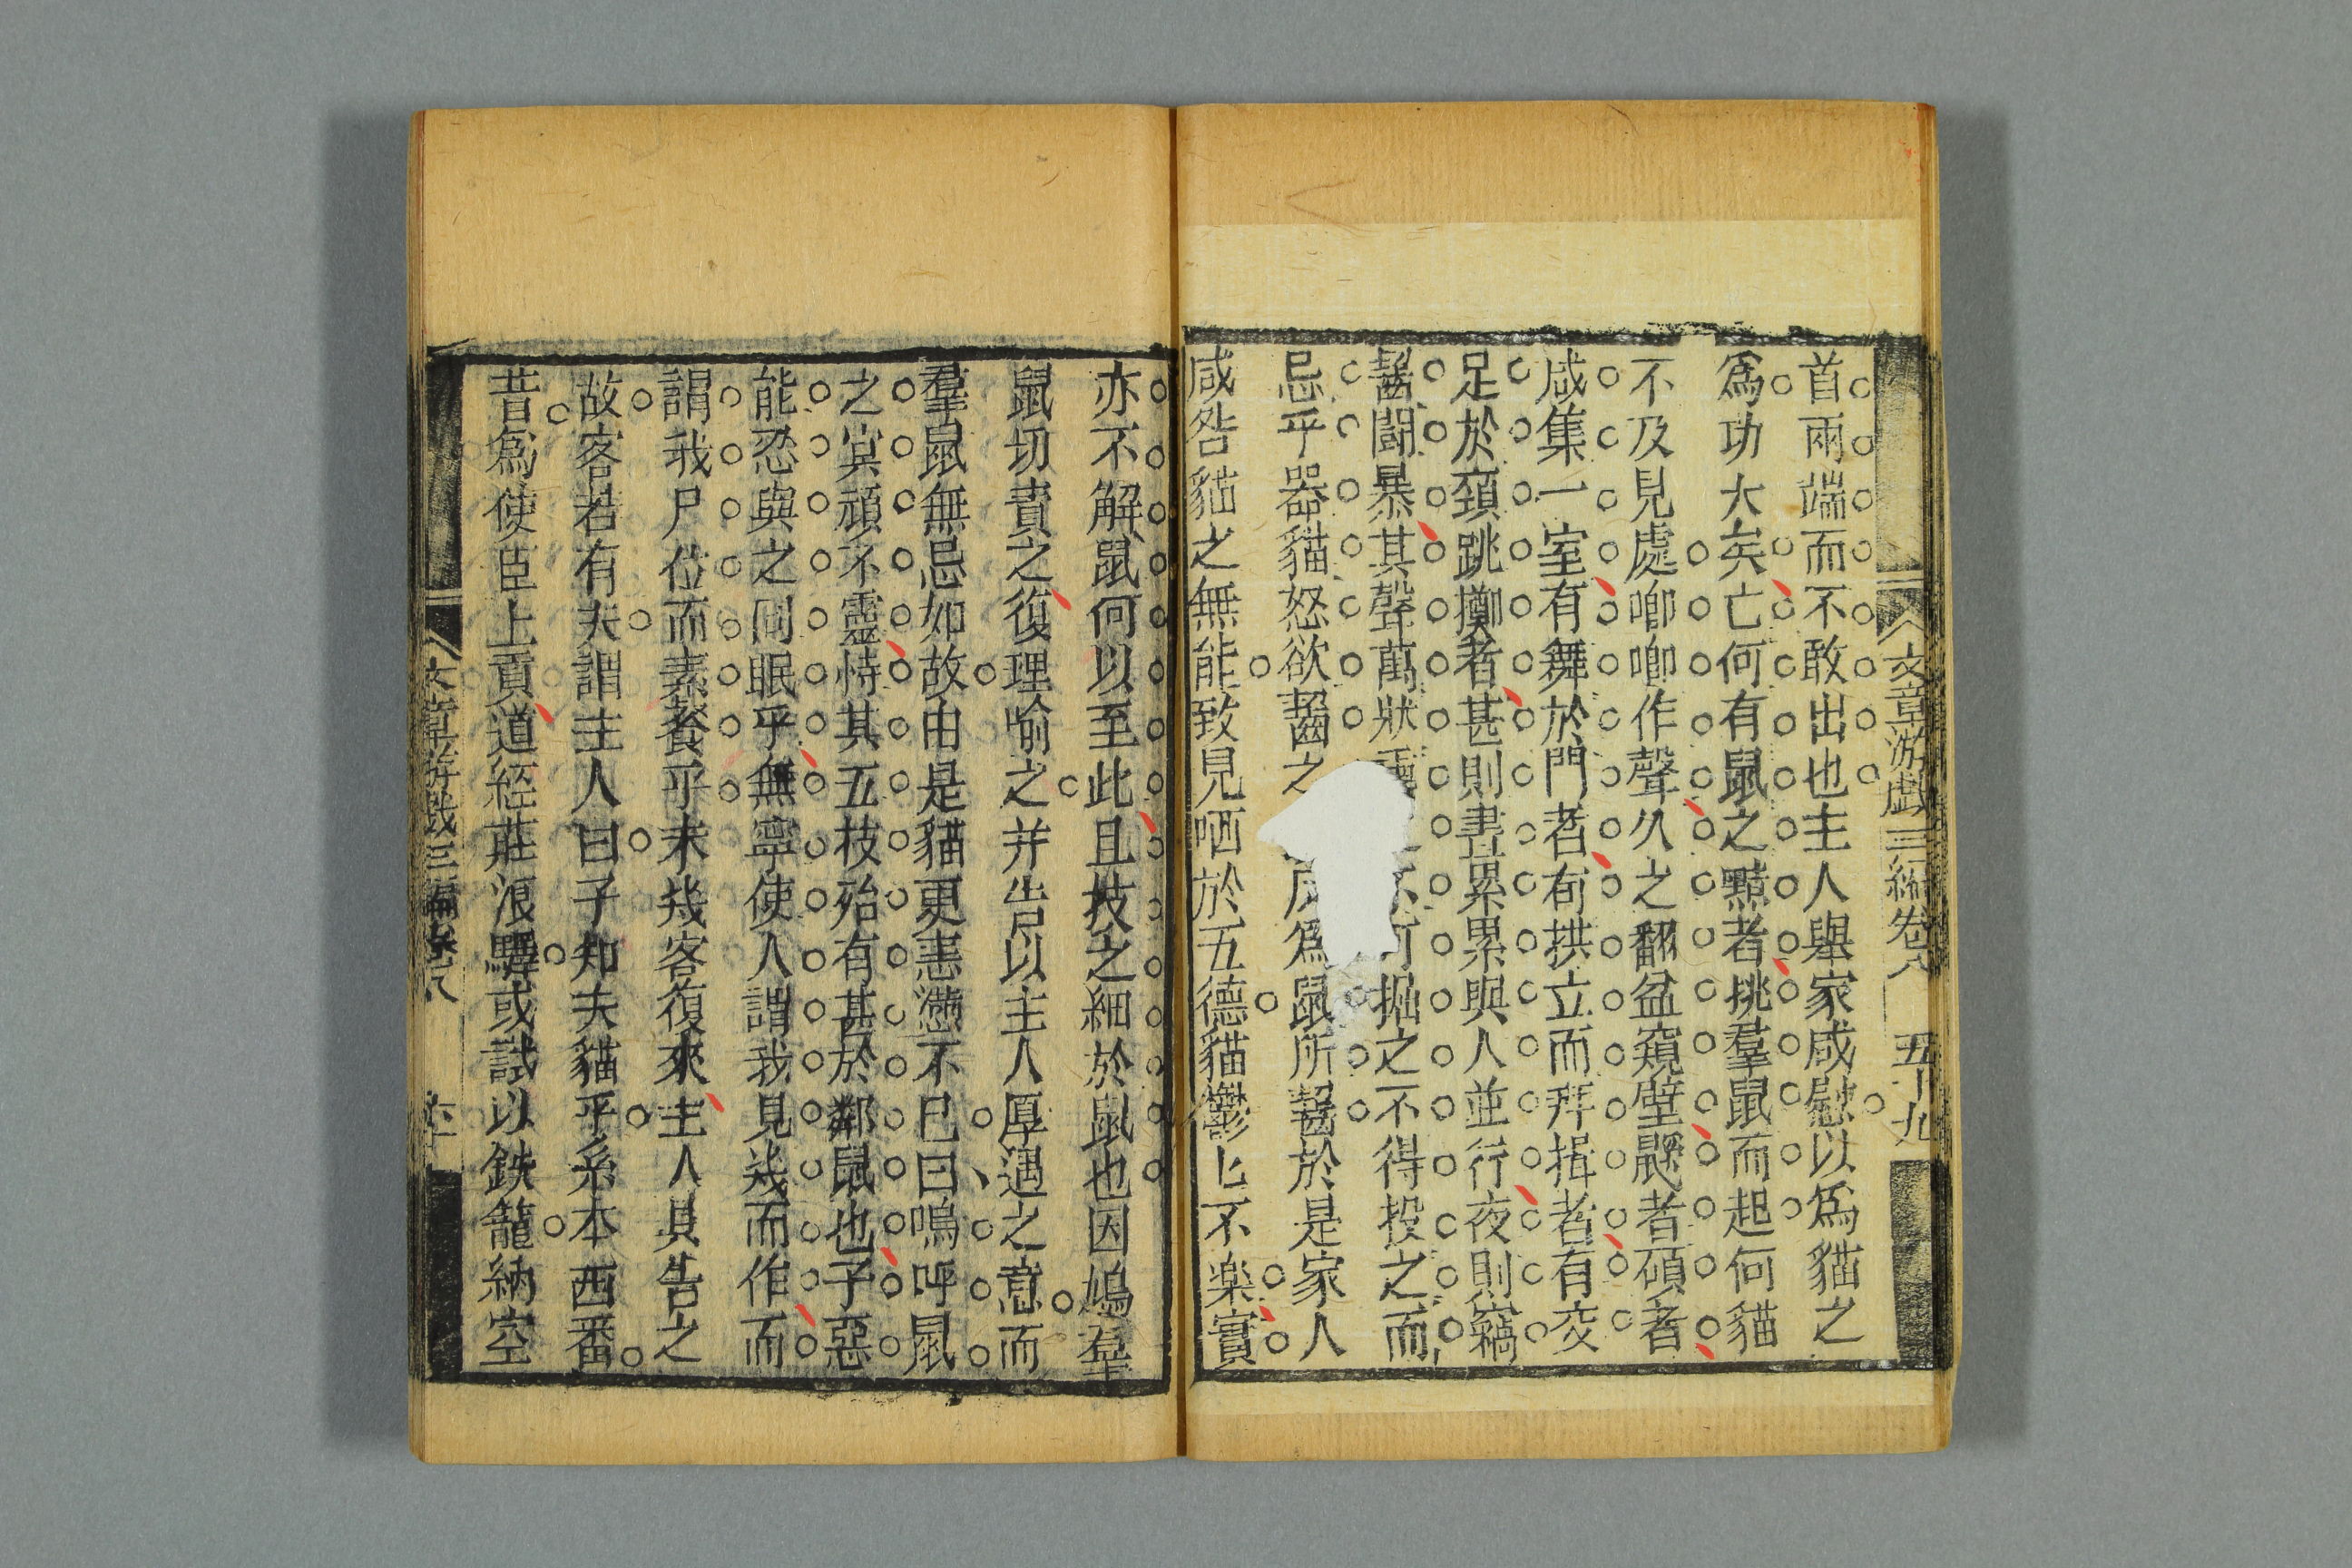 文章游戲三編卷八 五十九
首兩端而不敢出也主人舉家咸慰以為貓之
為功大矣亡何有鼠之黠者挑羣鼠而起何貓
不及見處啣啣作聲久之翻盆窺壁嚴者碩者
咸集一室有舞於門者有拱立而拜揖者有交
足於頸跳擲者甚則晝累累與人並行夜則竊
齧鬭暴其聲萬狀 可掘之不得投之而
忌乎器貓怒欲齧之 為鼠所齧於是家人
咸咎貓之無能致見哂於五德貓鬱匕不楽實
亦不解鼠何以至此且技之細於鼠也因鳩羣
鼠切責之復理喻之并告以主人厚遇之意而
羣鼠無忌如故由是貓更恚懣不巳曰嗚呼鼠
之㝠頑不靈恃其五枝殆有甚於鄰鼠也子惡
能忍與之同眠乎無寧使人謂我見㡬而作而
謂我尸位而素餐乎未㡬客復來主人具告之
故客若有夫謂主人曰子知夫貓乎系本西番
昔為使臣上貢道經莊浪驛或試以鉄籠納空
文章游戲三編卷八 六十